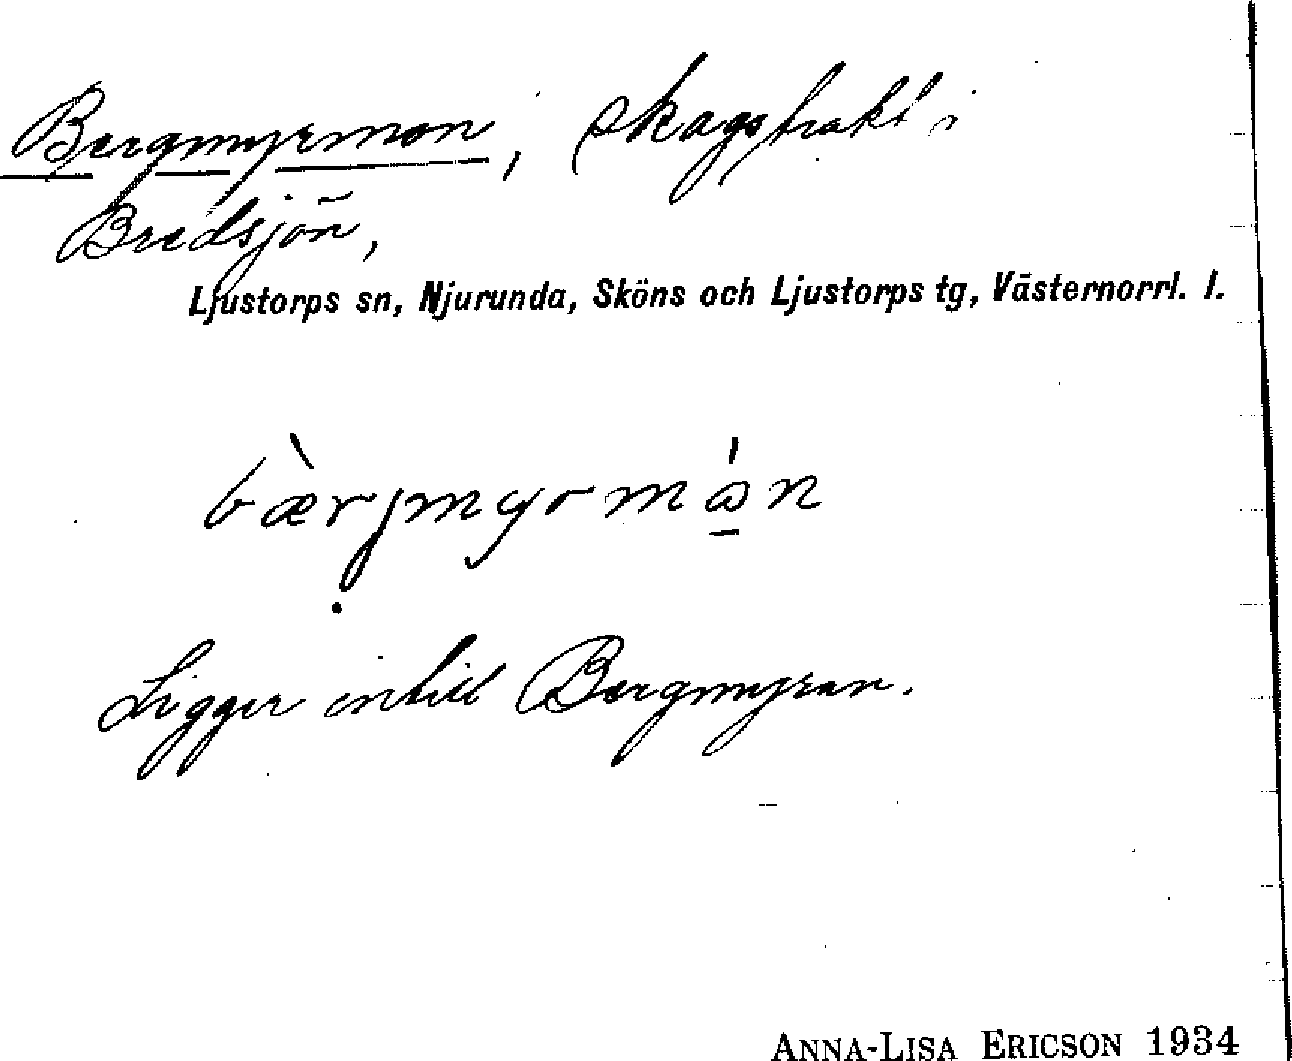 Bergmyrmon, skogstrakt i
Bredsjön,
Ljustorps sn, Njurunda, Sköns och Ljustorps tg, Västernorrl. l.
bæ̀rjmyrmɔ̀n
Ligger intill Bergmyran.
ANNA-LISA ERICSON 1934